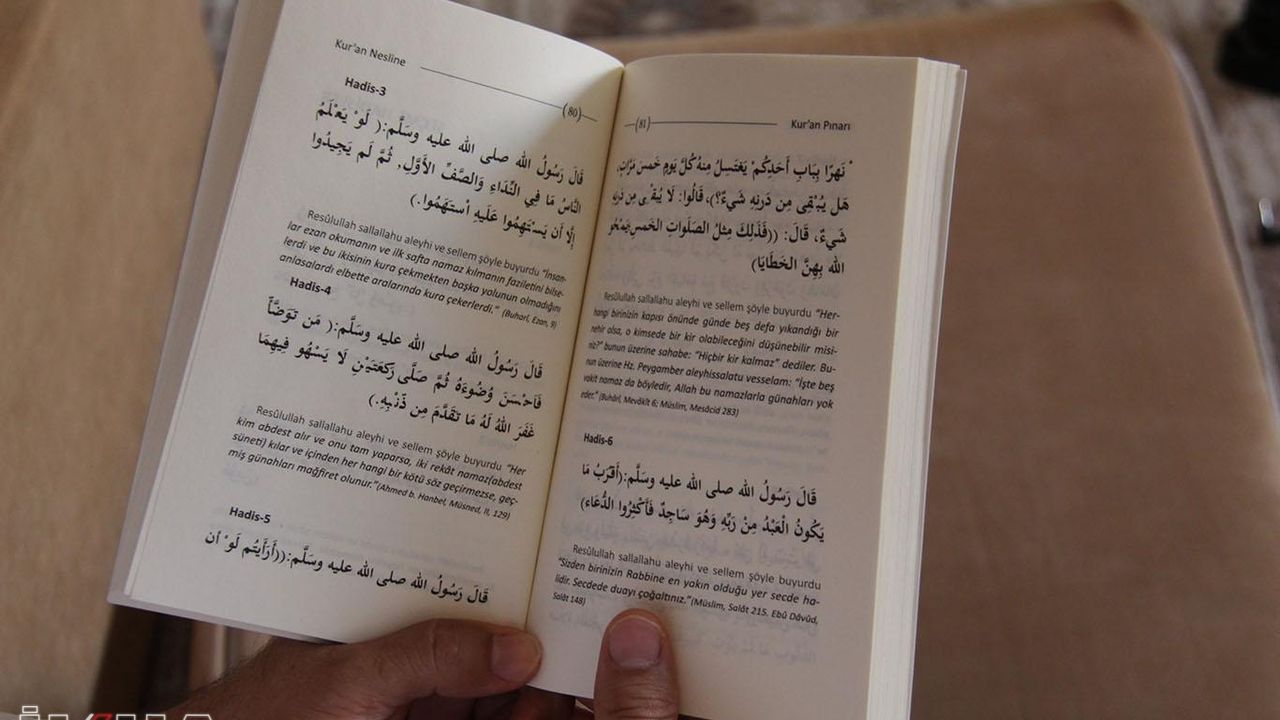 Kur'an Nesline
(80)
Hadis-3
قَالَ رَسُولُ الله صلى الله عليه وسَلَّم:( لَوْ يَعْلَمُ
النَّاسُ مَا فِي النِّدَاءِ وَالصَّفِّ الأَوَّلِ, ثُمَّ لَم يَجِيدُوا
إِلَّا أَن يَسْتَهِمُوا عَلَيهِ اُستَهَمُوا.)
Resûlullah sallallahu aleyhi ve sellem şöyle buyurdu "İnsan-
lar ezan okumanın ve ilk safta namaz kılmanın faziletini bilse-
lerdi ve bu ikisinin kura çekmekten başka yolunun olmadığını
anlasalardı elbette aralarında kura çekerlerdi." (Buharî, Ezan, 9)
Hadis-4
قَالَ رَسُولُ الله صلى الله عليه وسَلَّم:( مَن تَوَضَّأَ
فَاَحْسَنَ وُضُوءَهُ ثُمَّ صَلَّى رَكعَتَيْنِ لَا يَسْهُو فِيهِمَا
غَفَرَ اللهُ لَهُ مَا تَقَدَّمَ مِن ذَنْبِهِ.)
Resûlullah sallallahu aleyhi ve sellem şöyle buyurdu "Her
kim abdest alır ve onu tam yaparsa, iki rekât namaz(abdest
süneti) kılar ve içinden her hangi bir kötü söz geçirmezse, geç-
miş günahları mağfiret olunur."(Ahmed b. Hanbel, Müsned, II, 129)
Hadis-5
قَالَ رَسُولُ الله صلى الله عليه وسَلَّم:((أَرَأَيتُم لَوْ أن
(81)
Kur'an Pınarı
نَهرًا بِبَابِ أَحَدِكُمْ يَغتَسِلُ مِنهُ كُلَّ يَومٍ خَمسَ مَرَّاتٍ,
هَل يُبْقِى مِن دَرنِهِ شَيءٌ؟), قَالُوا: لَا يُبْقْى مِن دَرنِهِ
شَيءٌ, قَالَ: ((فَذَلِكَ مِثلُ الصَّلَواتِ الخَمسِ يَمْحُو
الله بِهِنَّ الخَطَايَا)
Resûlullah sallallahu aleyhi ve sellem şöyle buyurdu "Her-
hangi birinizin kapısı önünde günde beş defa yıkandığı bir
nehir olsa, o kimsede bir kir olabileceğini düşünebilir misi-
niz?" bunun üzerine sahabe: "Hiçbir kir kalmaz" dediler. Bu-
nun üzerine Hz. Peygamber aleyhissalatu vesselam: "İşte beş
vakit namaz da böyledir, Allah bu namazlarla günahları yok
eder." (Buhârî, Mevâkît 6; Müslim, Mesâcid 283)
Hadis-6
قَالَ رَسُولُ الله صلى الله عليه وسَلَّم:(أَقرَبُ مَا
يَكُونُ الْعَبْدُ مِنْ رَبِّهِ وَهُوَ سَاجِدٌ فَأَكْثِرُوا الدُّعَاءَ)
Resûlullah sallallahu aleyhi ve sellem şöyle buyurdu
"Sizden birinizin Rabbine en yakın olduğu yer secde ha-
lidir. Secdede duayı çoğaltınız."(Müslim, Salât 215. Ebû Dâvûd,
Salât 148)